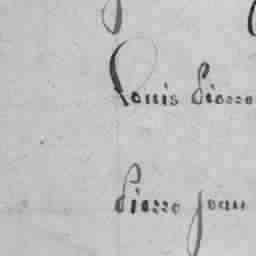 Louis Pierre
Pierre Jean